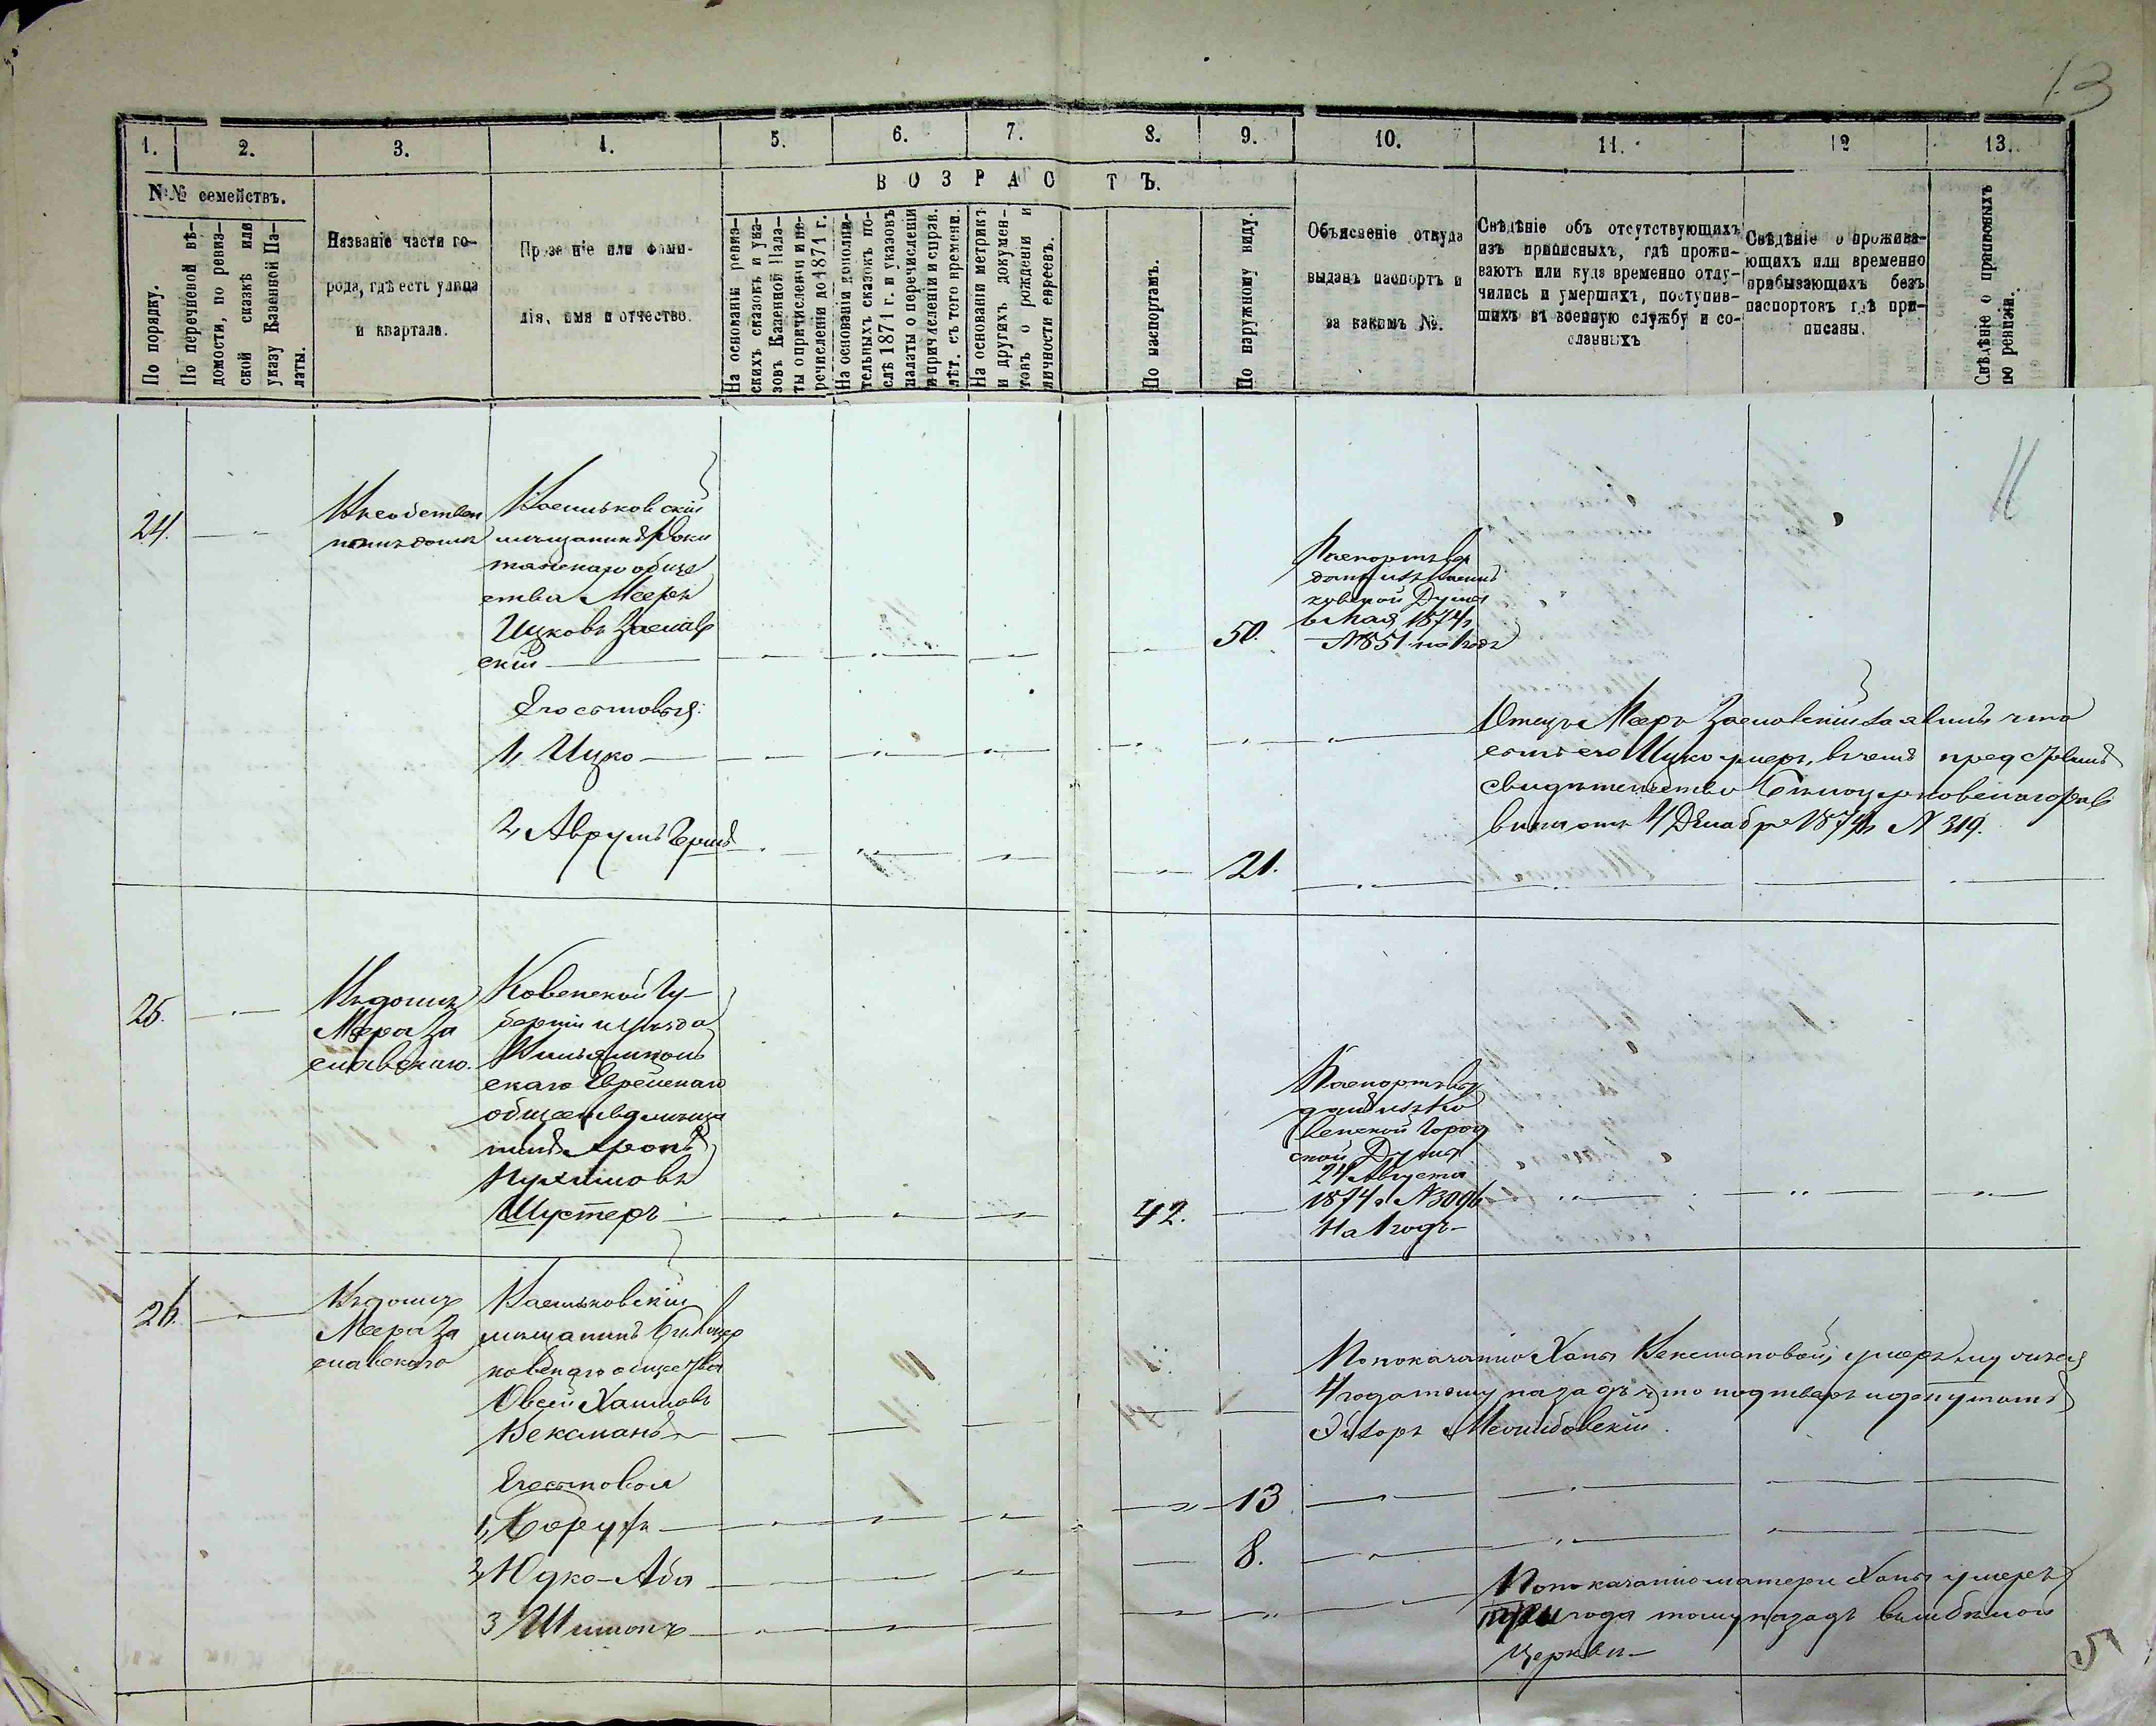 13
1. 2. 3. 4. 5. 6. 7. 8. 9. 10. 11. 12 13.
№№ семействъ.
По порядку.
По перечневой вѣ-
домости, по ревиз-
ской сказкѣ или
указу Казенной Па-
латы.
Названіе части го-
рода, гдѣ есть улица
и квартала.
Прозв ніе или фами-
лія, имя и отчество.
ВОЗРАСТЪ.
На основаніи ревиз-
скихъ сказокъ и ука-
зовъ Казенной Пала-
ты о причисленіи и пе-
речисленіи до 1871 г.
На основаніи дополни-
тельныхъ сказокъ по-
слѣ 1871 г. и указовъ
палаты о перечисленіи
и причисленіи и справ.
лѣт. съ того времени.
На основаніи метрикъ
и другихъ докумен-
товъ о рожденіи и
личности евреевъ.
По паспортамъ.
По наружному виду.
Объясненіе откуда
выданъ паспортъ и
за какимъ №.
Свѣдѣніе объ отсутствующихъ
изъ приписныхъ, гдѣ прожи-
ваютъ или куда временно отлу-
чились и умершихъ, поступив-
шихъ въ военную службу и со-
сланныхъ
Свѣдѣніе о прожива-
ющихъ или временно
прибывающихъ безъ
паспортовъ гдѣ при-
писаны.
Свѣдѣніе о приписныхъ
по ревизіи.
24.
Васильковскій
мѣщанинъ Роки
тянскаго обще
ства Мееръ
Ицковъ Заслав
скій
50.
Паспортъ вы
данъ изъ Василь
ковской Думы
Мая 1874 г
№ 851 на 1 годъ
Его сыновья:
1, Ицко
Отецъ Мееръ Заславскій заявилъ что
сынъ его Ицко умеръ, въ чемъ представилъ
свидѣтельство Бѣлоцерковскаго рав
вина отъ 4 Декабря 1874 г № 319.
2, Аврумъ Гершъ
21.
25.
Въ домѣ
Меера За
славскаго.
Ковенской Гу-
берніи и уѣзда
скаго Еврейскаго
общества мѣща
нинъ
Шустеръ
42.
Паспортъ вы
данъ изъ Ко
венской Город
ской Думы
24 Августа
1874 г № 3096
на 1 годъ
26.
Въ домѣ
Меера За
славскаго
Васильковскій
мѣщанинъ Бѣлоцер
ковскаго общества
Овсей Хаимовъ
Вексманъ
По показанію Ханы Вексмановой, умеръ мужъ ея
4 года тому назадъ что подтвердилъ депутатъ
Его сыновья
1, Борухъ
13
2, Юдко-Аба
8.
3 Шимонъ
По показанію матери Ханы умеръ
три года тому назадъ въ м бѣлой
Церкви